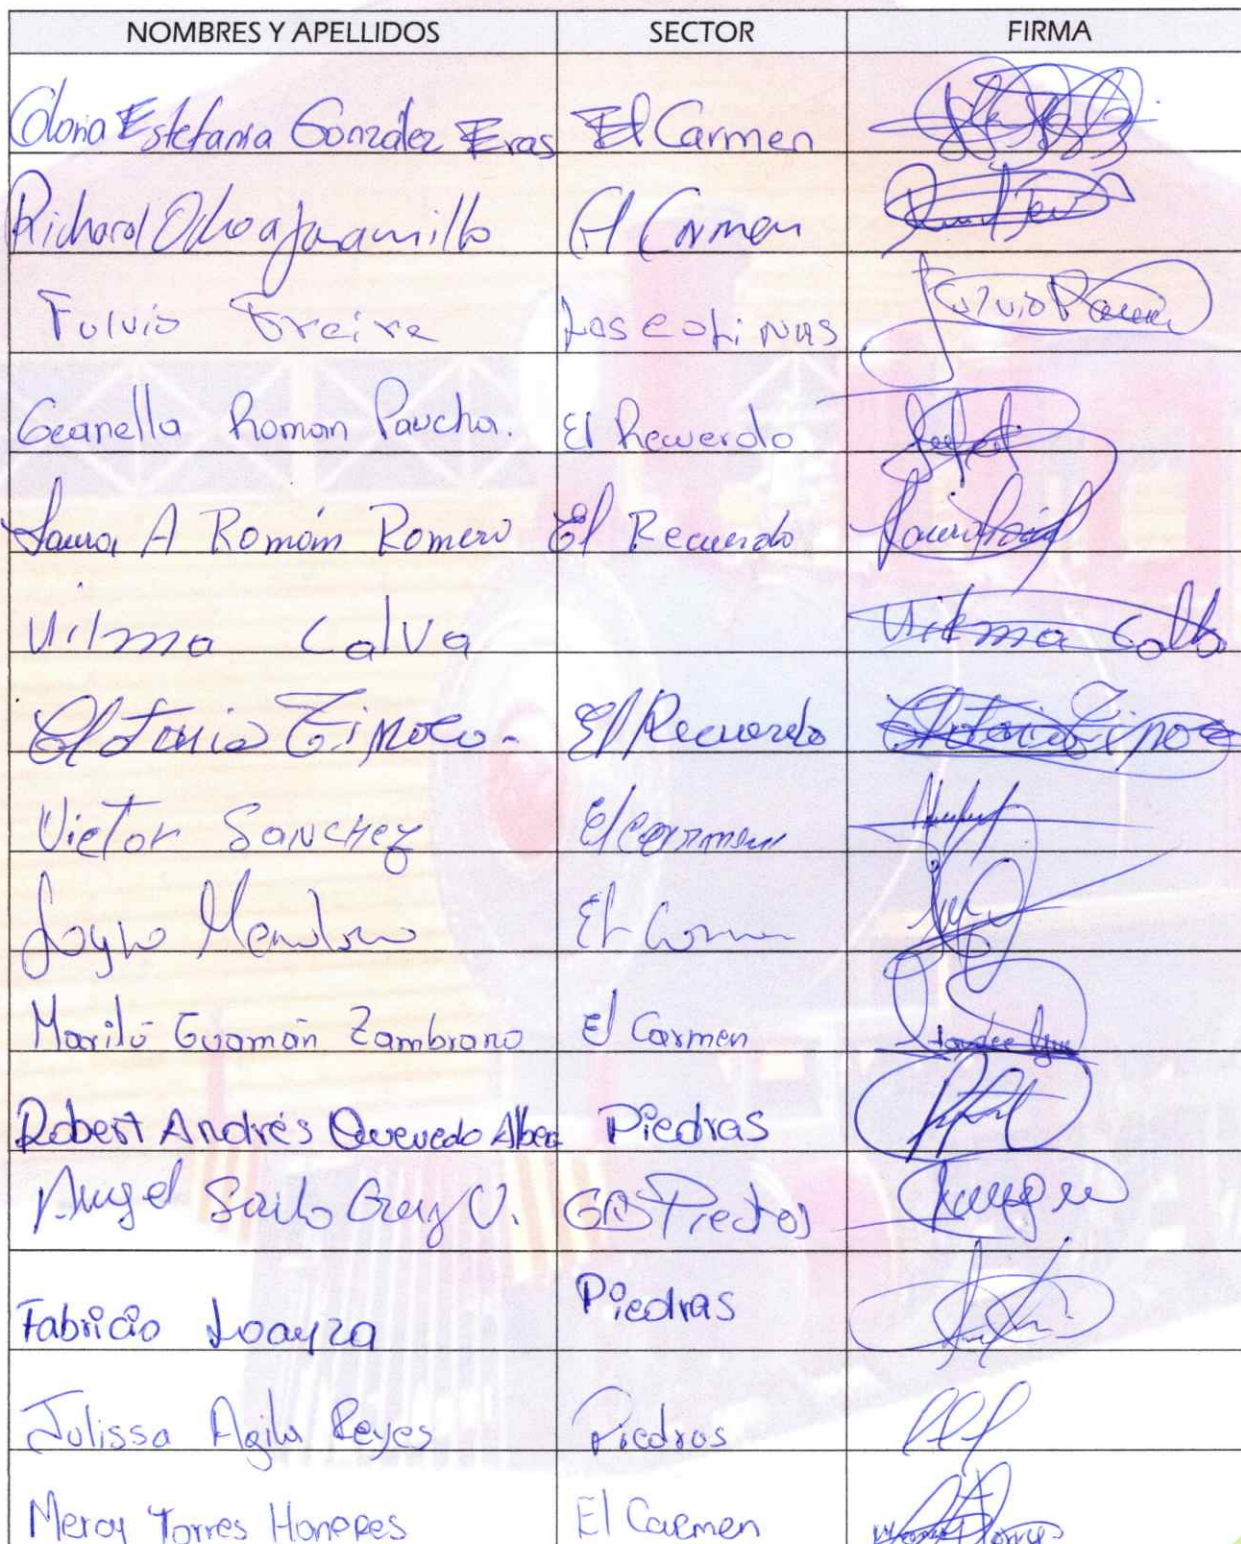 NOMBRES Y APELLIDOS SECTOR FIRMA
Gloria Estefania González Eras El Carmen
Richard Ochoa Jaramillo El Carmen
Fulvio Freire Las Colinas Fulvio
Geanella Roman Paucha. El Recuerdo
Laura A Román Romero El Recuerdo
Vilma Calva Vilma Calva
El Recuerdo
Victor Sanchez El Carmen
Mendoza El Carmen
Marilú Guamán Zambrano El Carmen
Robert Andrés Quevedo Piedras
Angel V. GAD Piedras
Fabricio Loayza Piedras
Julissa Agila Reyes Piedras
Mercy Torres Honores El Carmen